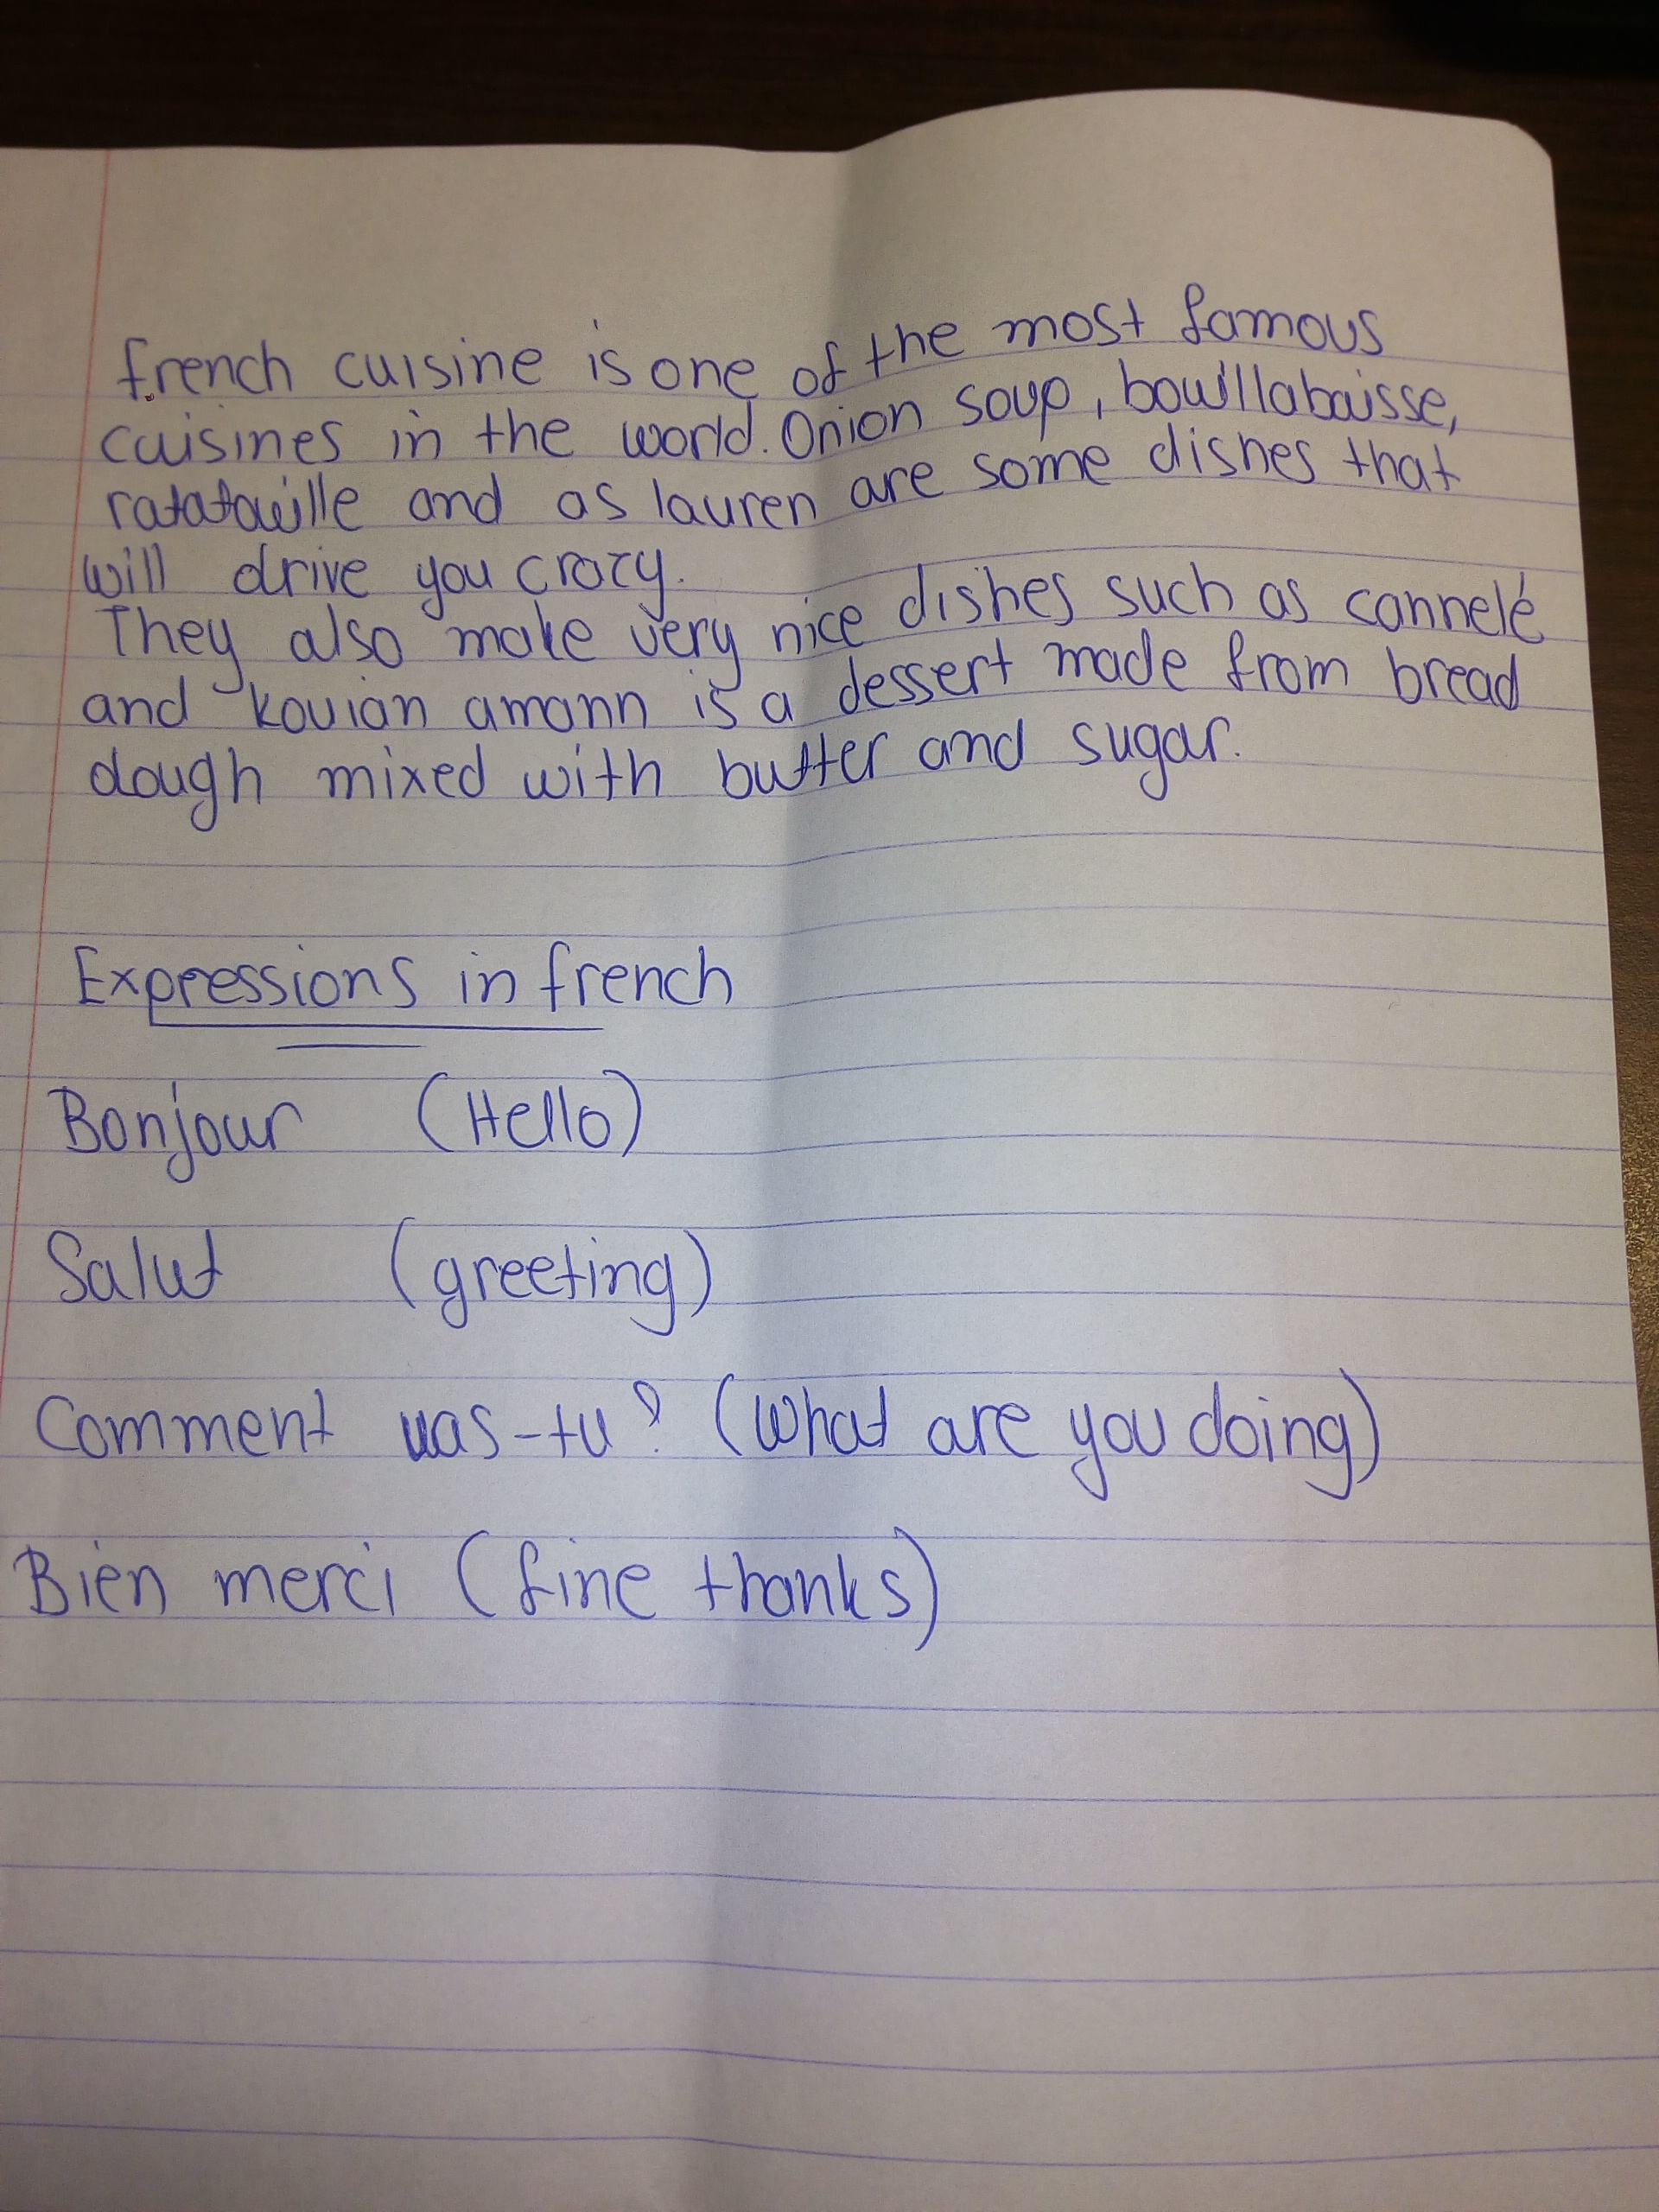 french cuisine is one of the most famous
cuisines in the world. Onion soup, bouillabaisse,
ratatouille and as lauren are some dishes that
will drive you crazy.
They also make very nice dishes such as cannelé
and kouian amann is a dessert made from bread
dough mixed with butter and sugar.
Expressions in french
Bonjour (Hello)
Salut (greeting)
Comment vas-tu? (What are you doing)
Bien merci (fine thanks)